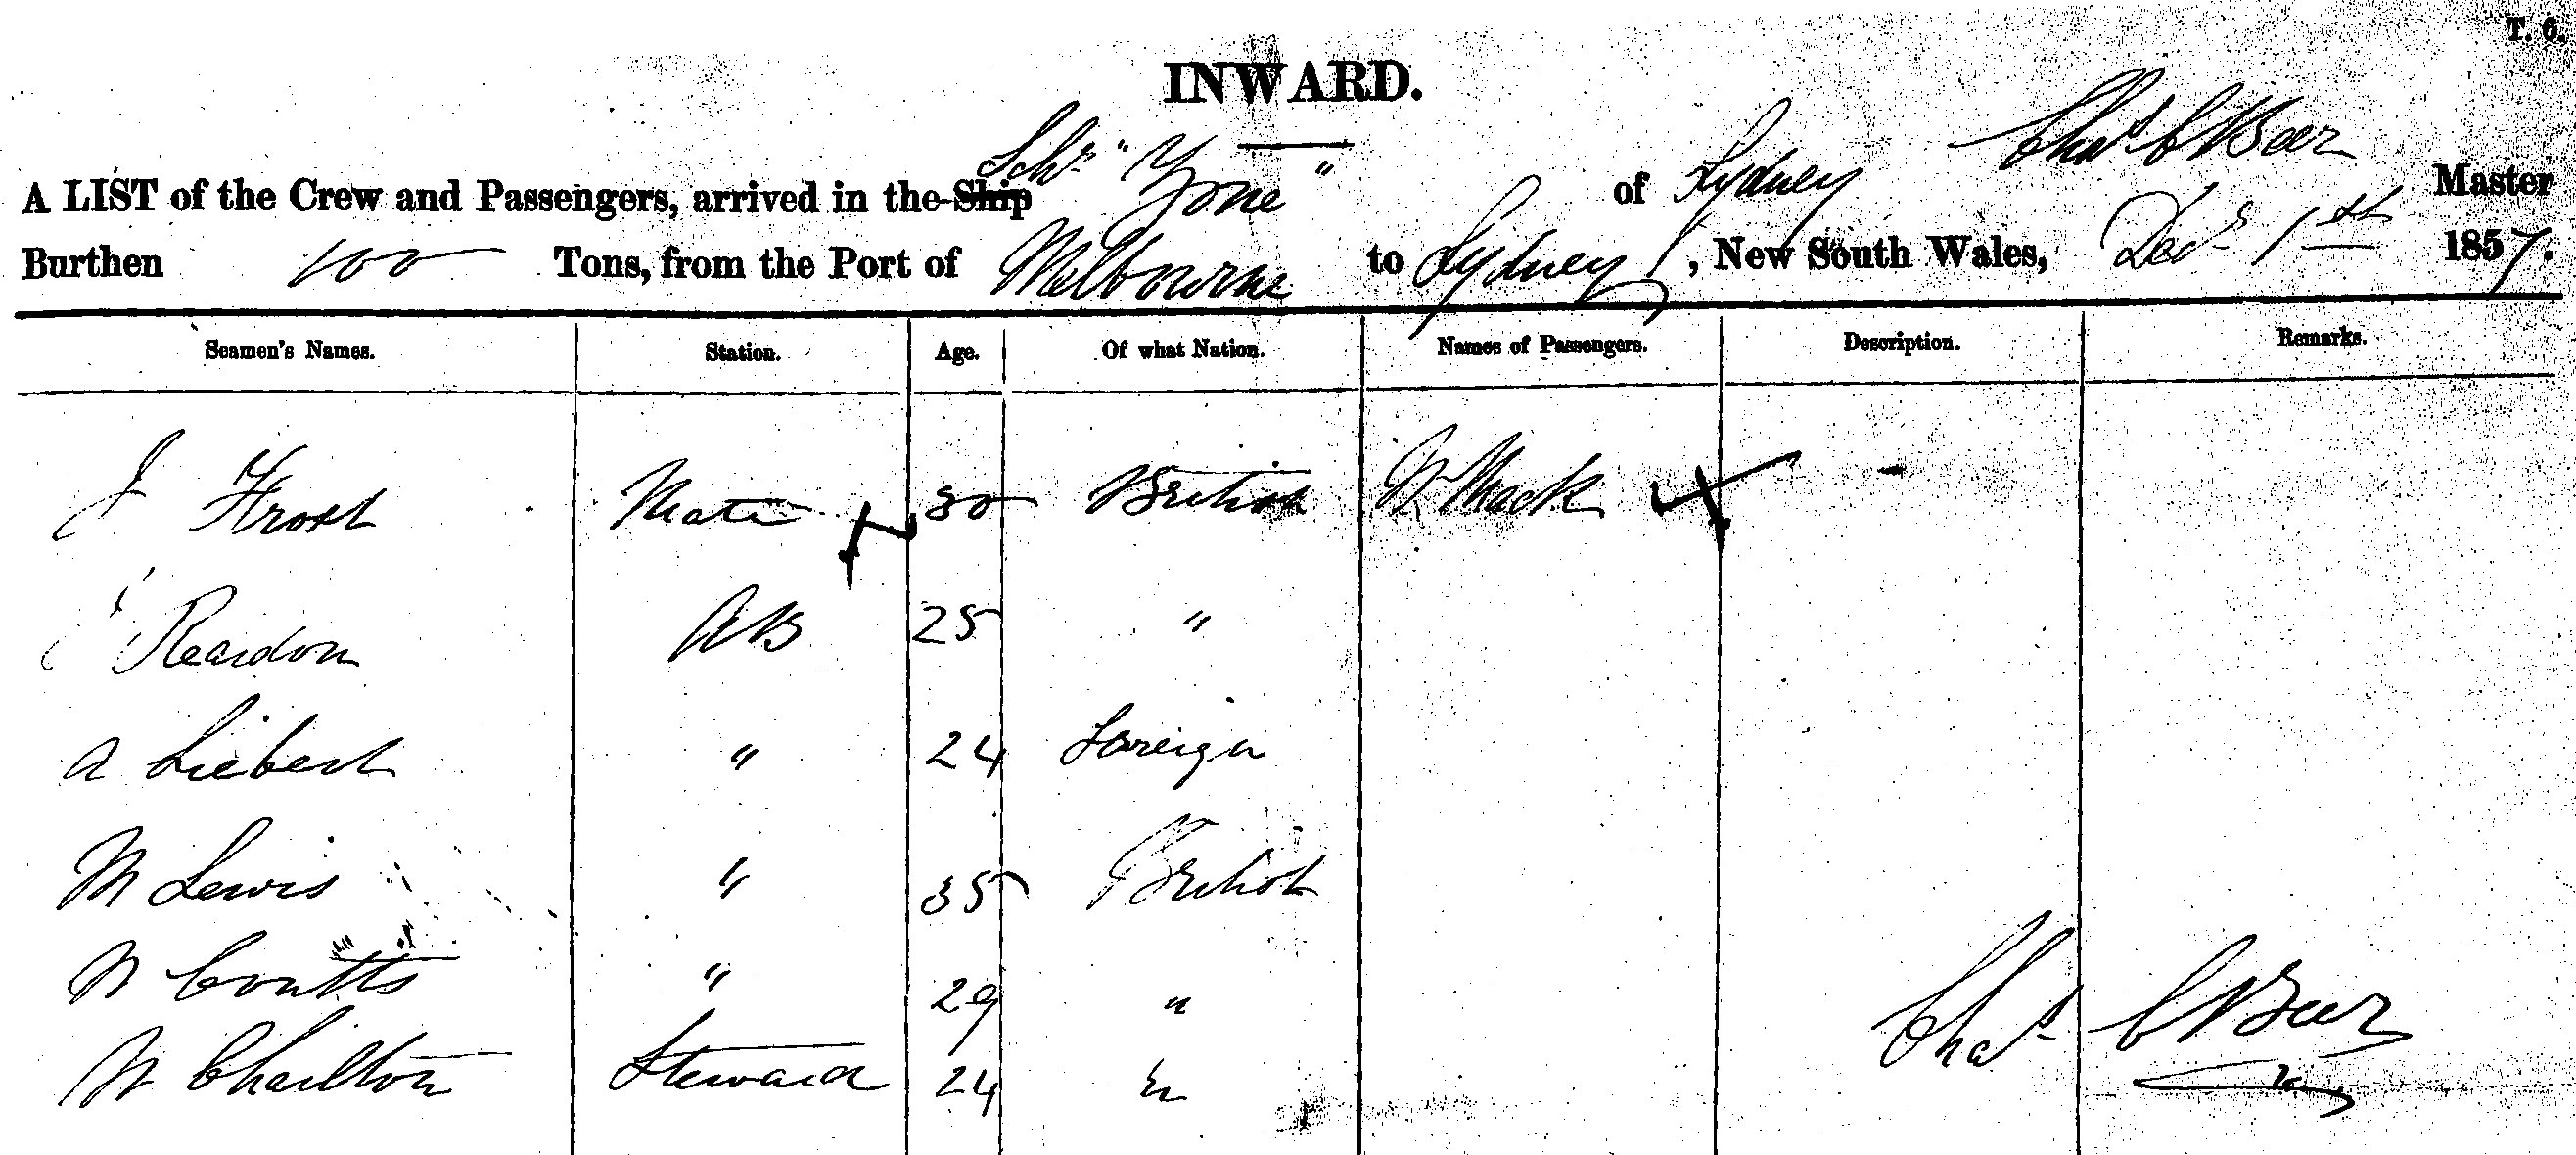 T. 6.
INWARD.
A LIST of the Crew and Passengers, arrived in the Ship Schr "Yone" of Sydney Chas C Beer Master
Burthen 100 Tons, from the Port of Melbourne to Sydney, New South Wales, Decr 1st 1857.
Seamen's Names. Station. Age. Of what Nation. Names of Passengers. Description. Remarks.
J Frost Mate 30 British W Mack -
J Reardon AB 25 "
A Liebert " 24 Foreign
M Lewis " 35 British
W Coutts " 29 "
W Charlton Steward 24 "
Chas C Beer